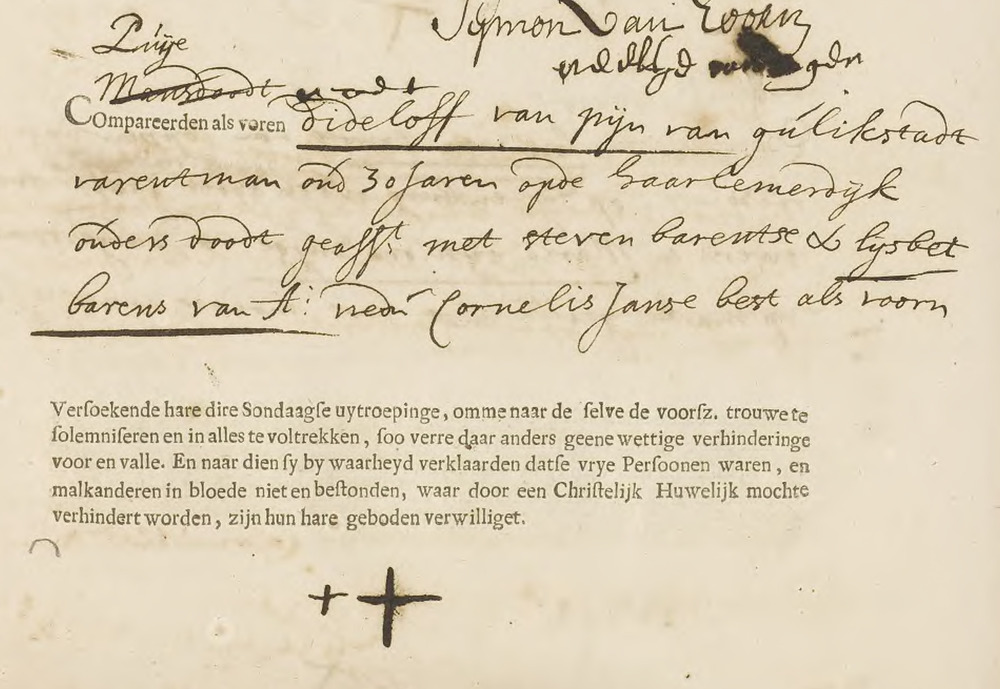 Symon Van Loohn
Puije
Mansdoodt
Compareerden als voren dideloff van pijn van gulikstadt
varentman oud 30 Jaren opde haarlemerdijk
ouders doodt geasst met steven barentse & lysbet
barens van A: Cornelis Janse best als voorn
Versoekende hare dire Sondaagse uytroepinge, omme naar de selve de voorsz. trouwe te
solemniseren en in alles te voltrekken, soo verre daar anders geene wettige verhinderinge
voor en valle. En naar dien sy by waarheyd verklaarden datse vrye Persoonen waren, en
malkanderen in bloede niet en bestonden, waar door een Christelijk Huwelijk mochte
verhindert worden, zijn hun hare geboden verwilliget.